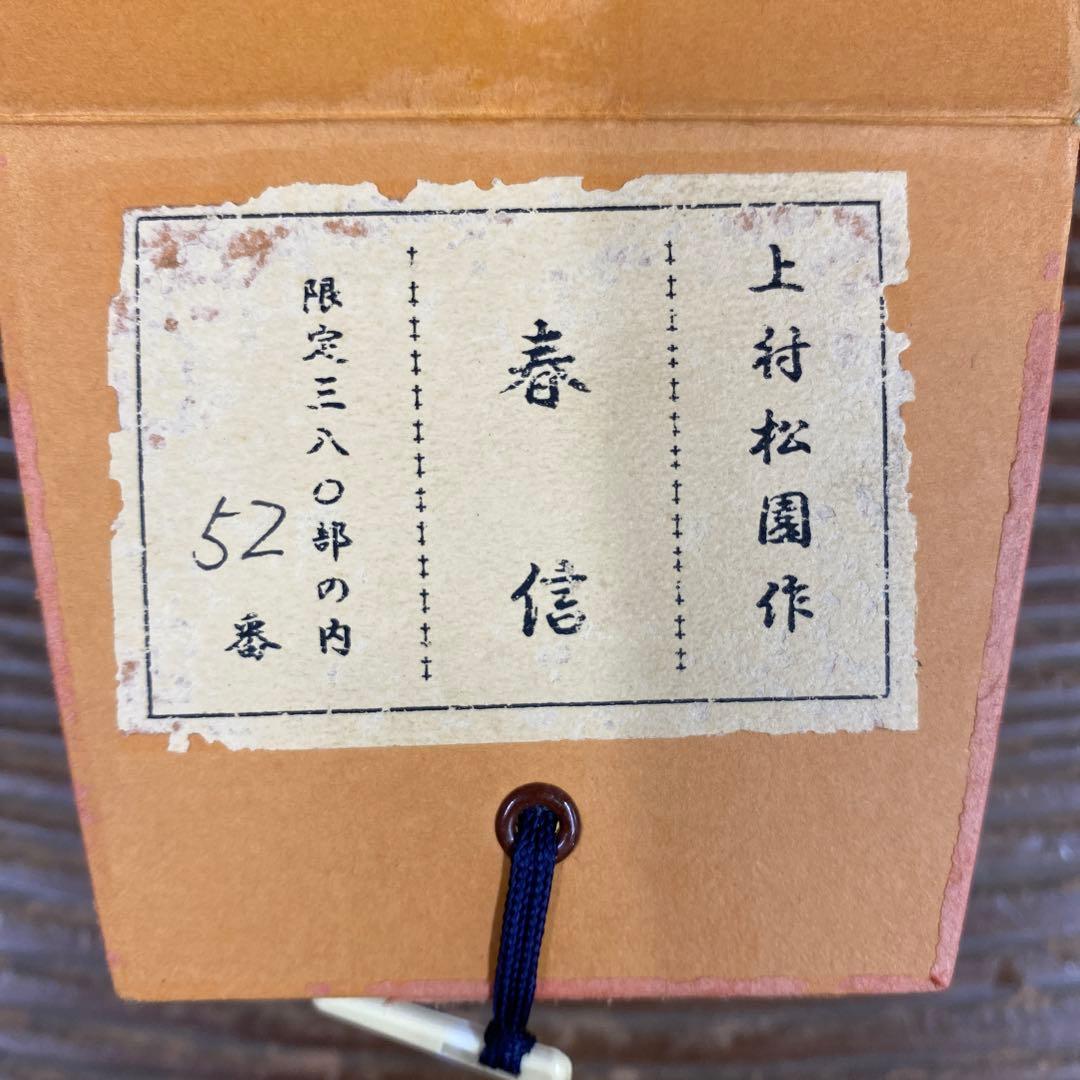 上村松園作
春信
限定三八〇部の内
52番